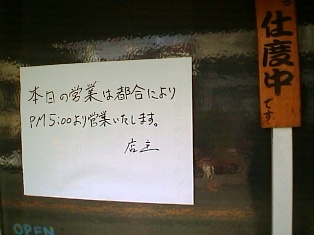 本日の営業は都合により
PM5:00より営業いたします。
店主
仕度中
です
OPEN